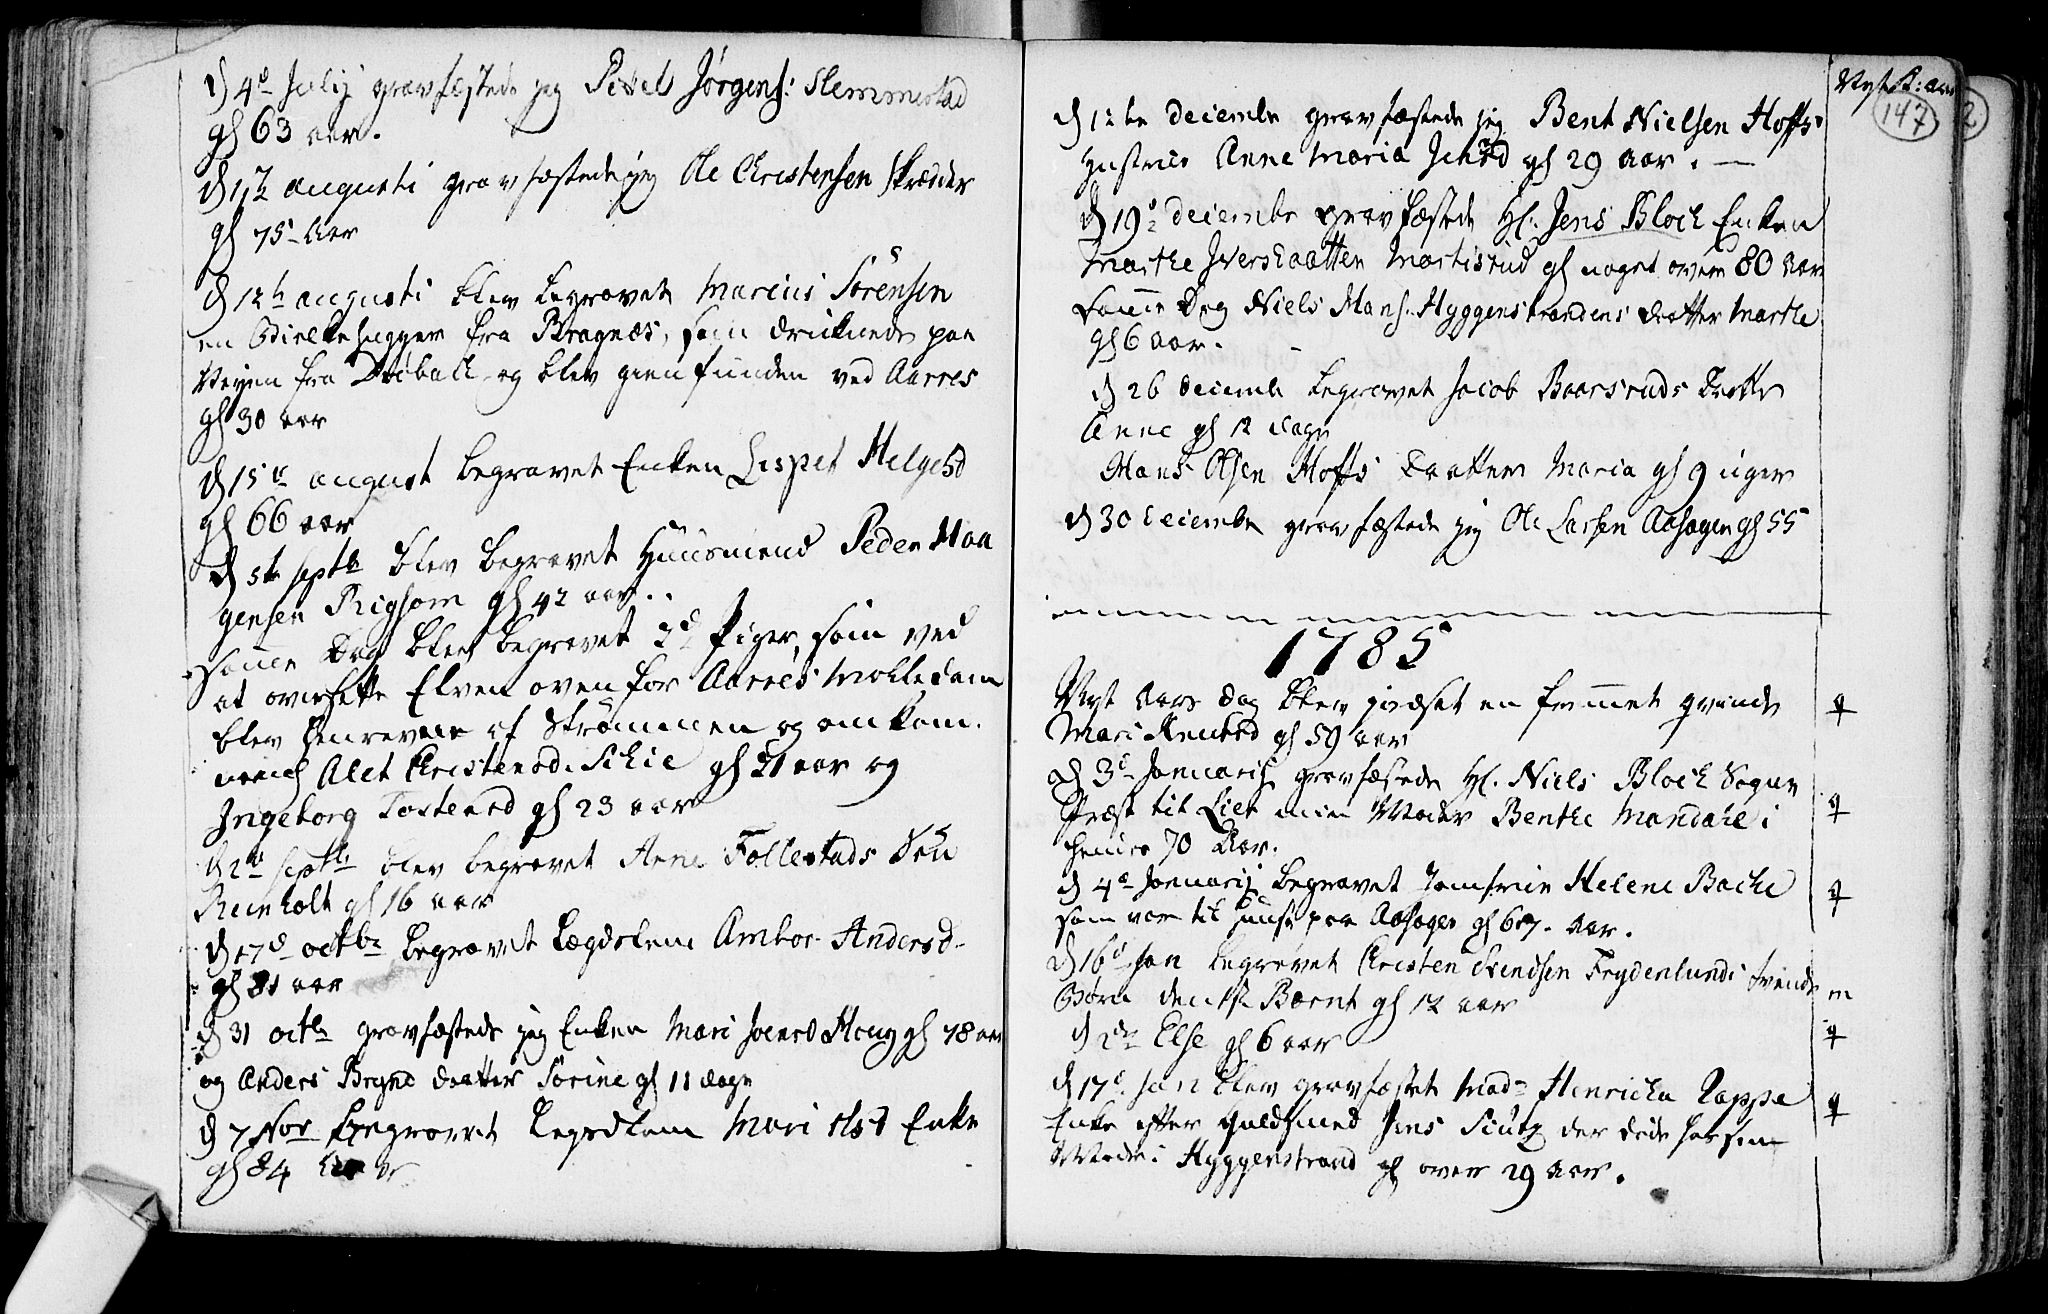 D 4d Julij gravfæstede jeg Pettel Jørgens: Slemmestad
gl 63 aar.
D 11te augusti gravfæstede jeg Ole Christensen Skræder
gl 75 Aar
D 12te augusti blev begravet Marcus Sörensen
en Bielkehugger fra Bragnæs, som druknede paa
Veyen fra Dröbach og blev gienfunden ved Aarres
gl 30 aar
D 15de august begravet Enken Lispet Helgesd
gl 66 aar
D 5te septb blev begravet Huusmand Peder Maa
gensen Rigsom gl 42 aar..
Samme Dag blev begravet 2de Piger, som ved
at oversette Elven ovenfor Aarres Mölledam
blev henrevne af Strömmen og omkom.
navnl Alet Christensd. Schie gl 21 aar og
Ingeborg Tostensd gl 23 aar
D 2de septb blev begravet Arne Follestads Sön
Reinholt gl 16 aar
D 17d octbr begravet Lægdslem Ambor Andersd
gl 81 aar
D 31 octb gravfæstede jeg Enken Mari Joensd Houg gl 78 aar
og Anders Brynd datter Sörine gl 11 dage
D 7 Nov begravet Legdslem Mari Olsd Enke
gl 84 Aar
Nyt K: aar
147
2
D 12te decembr gravfæstede jeg Bent Nielsen Hoffs
Hustrue Anne Maria gl 29 Aar.
D 19de decembr gravfæstede Hl. Jens Bloch Enken
Marthe Iversdaatter Mortisrud gl noget over 80 Aar
Samme Dag Niels Hans. Hyggenstrandens datter Marthe
gl 6 Aar.
D 26 decemb begravet Jacob Baarsruds Datter
Anne gl 12 dage
Hans Olsen Hoffs Daatter Maria gl 9 uger
D 30 decembr gravfæstede jeg Ole Larsen Aahagen gl 55
1785
Nyt Aars dag blev jordset en fremmet qvinde q
Mari Knutsd gl 59 aar
D 3de Januarij gravfæstede Hl. Niels Bloch Sogne
Præst til Lier min Moder Benthe Mandahl i q
hendes 70 Aar.
D 4de Januarij begravet Jomfrue Helene Bache q
som var til Huuse paa Aahagen gl 67. Aar.
D 16d Jan begravet Christen Svendsen Frydenlunds tvende
Børn den 1ste Bernt gl 12 aar m
D 2den Else gl 6 aar q
D 17d. Jan blev gravfæstet Mad. Henricha Rappe
Enke efter Guldsmed Jens Sciütz der døde hos sin q
Moder i Hyggenstrand gl over 29 Aar.